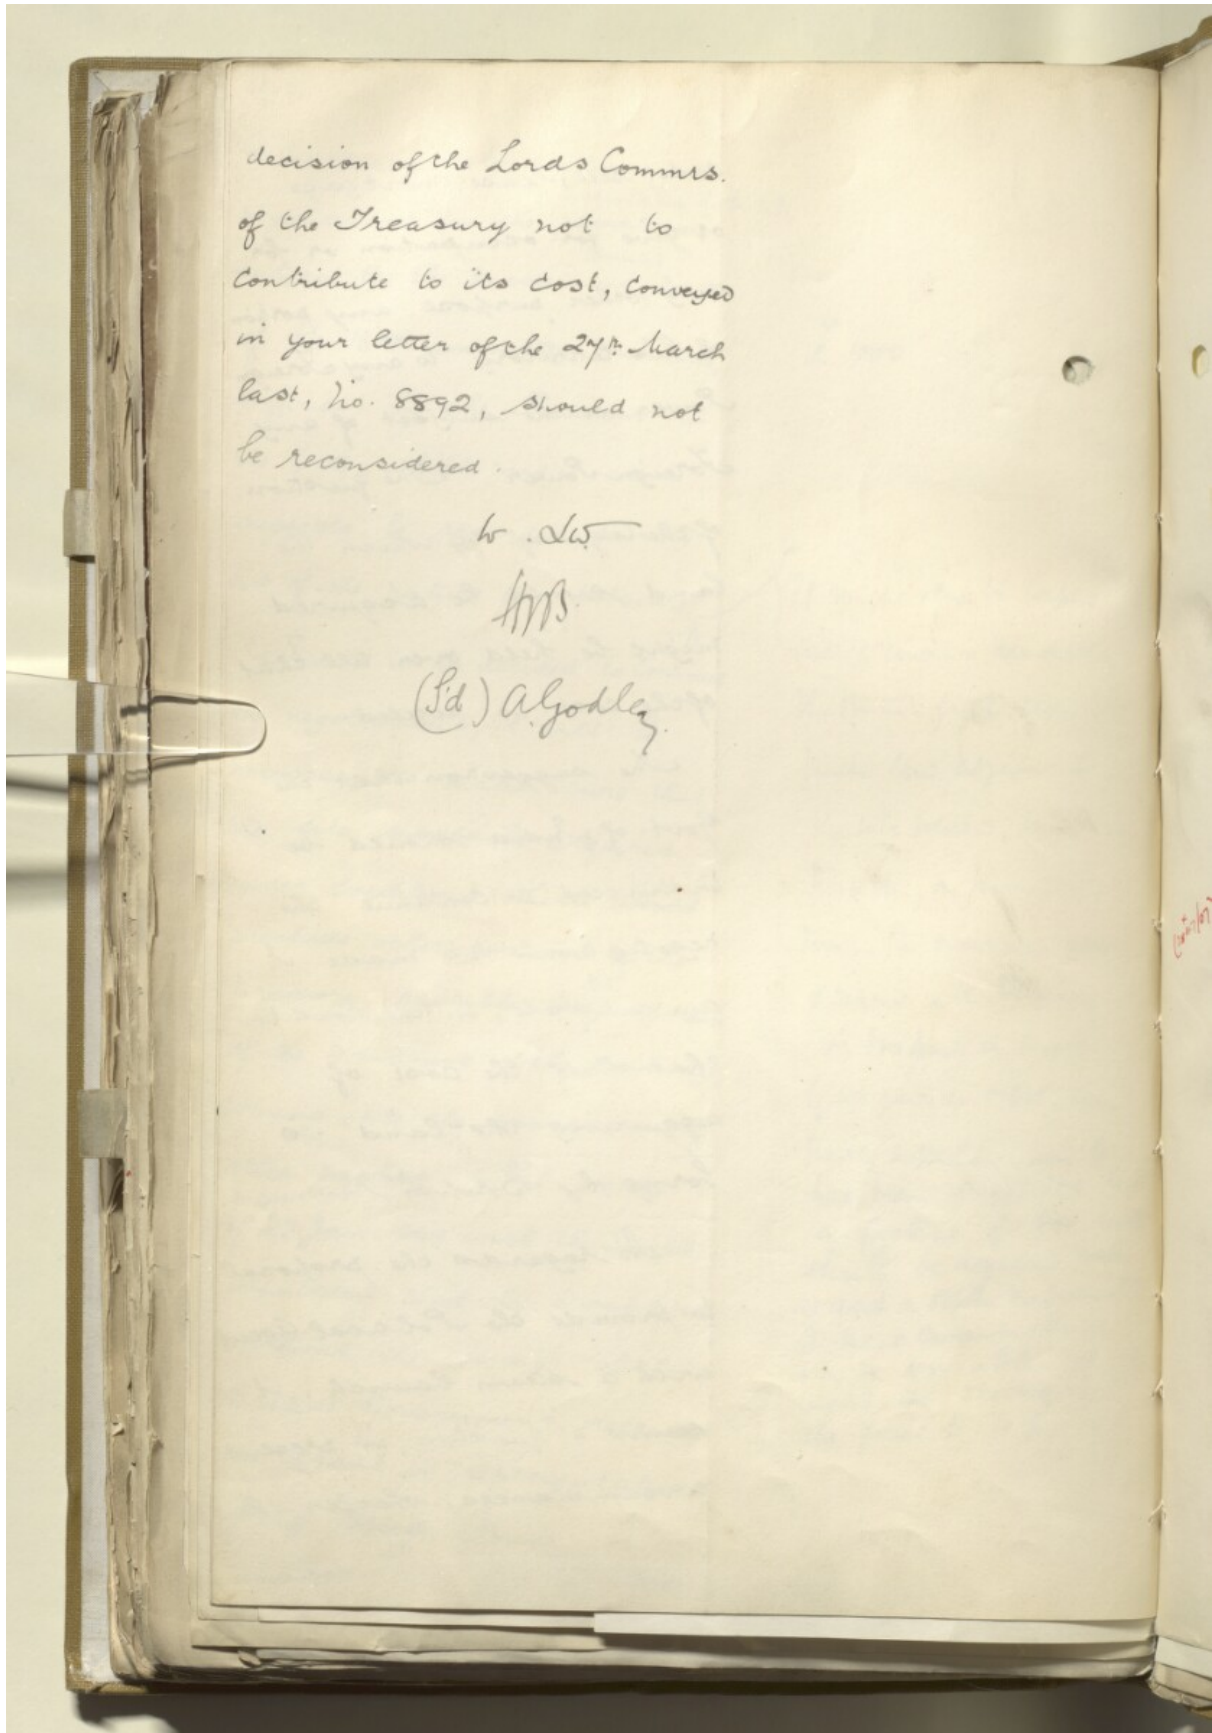 decision of the Lords Commrs.
of the Treasury not to
contribute to its cost, conveyed
in your letter of the 27th March
last, No. 8892, should not
be reconsidered.
(S'd) A. Godley.